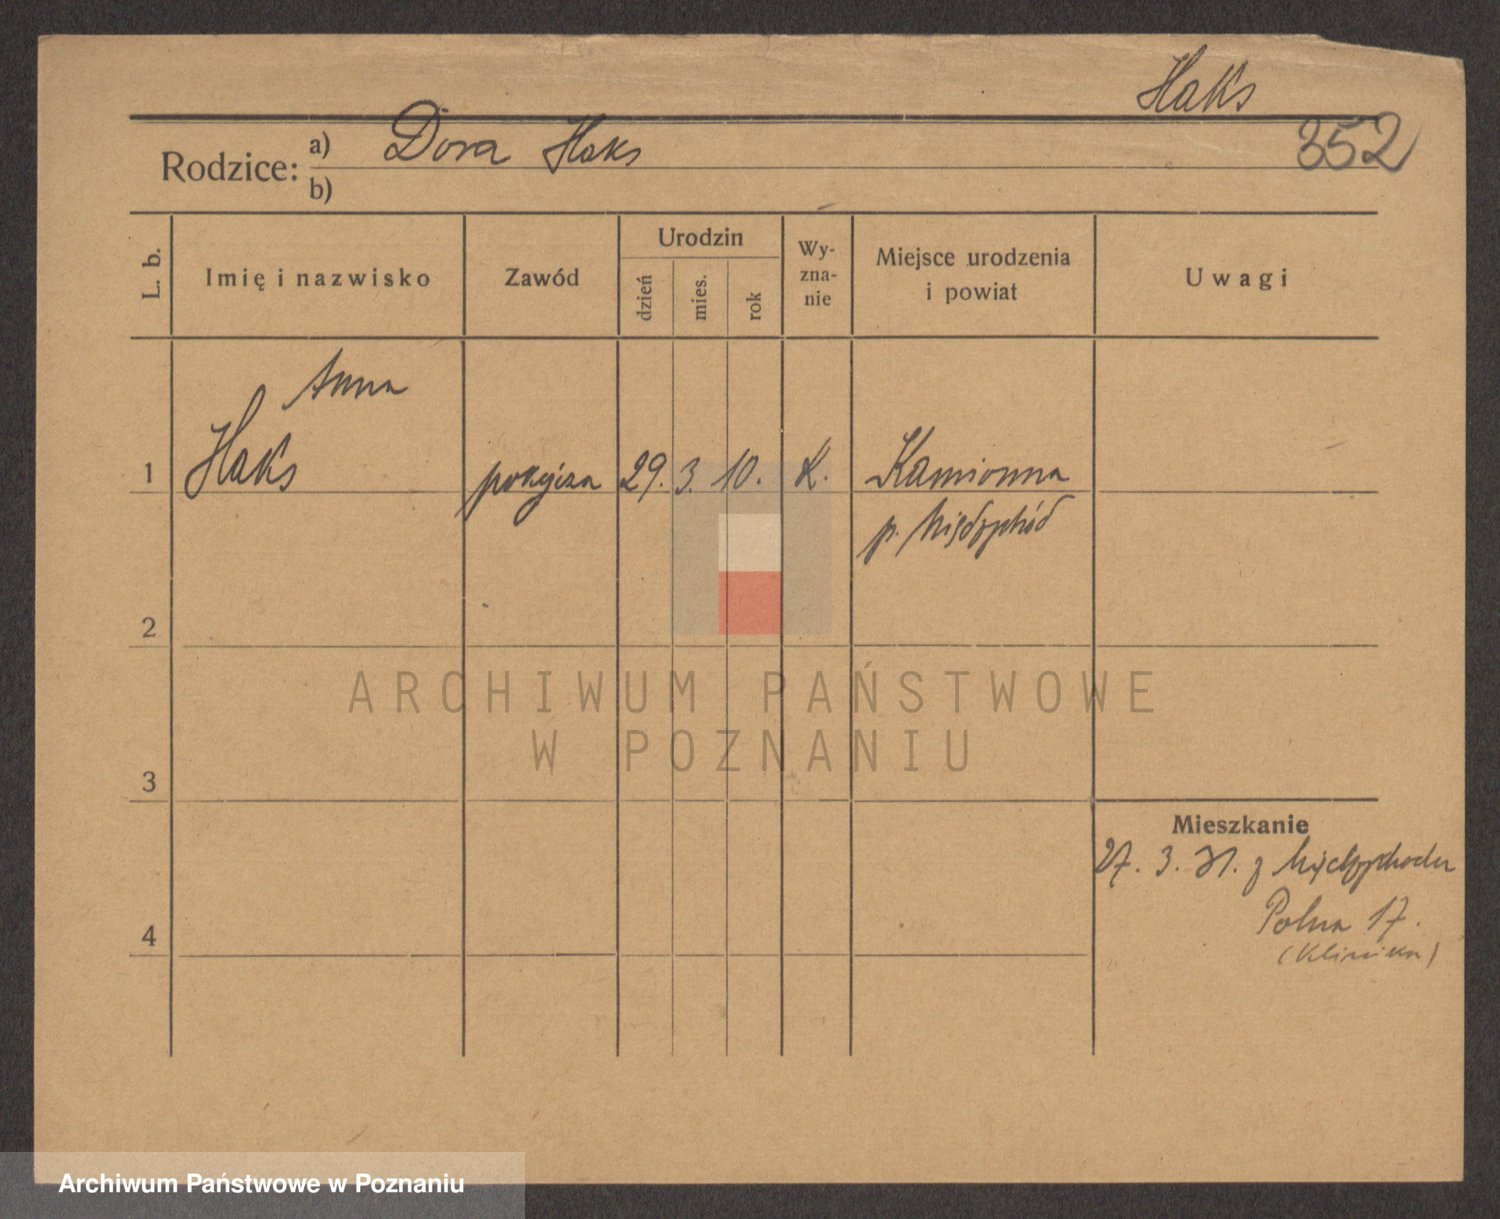 Haks
352
Rodzice: a) Dora Haks
b)
L. b.
Imię i nazwisko
Zawód
Urodzin
dzień
mies.
rok
Wy-
zna-
nie
Miejsce urodzenia
i powiat
Uwagi
Anna
1 Haks pokojcza 29. 3. 10. k. Kamionna
p. Międzychód
2
3
4
Mieszkanie
27. 3. 31. z Międzychodu
Polna 17.
(Klinika)
ARCHIWUM PAŃSTWOWE
W POZNANIU
Archiwum Państwowe w Poznaniu